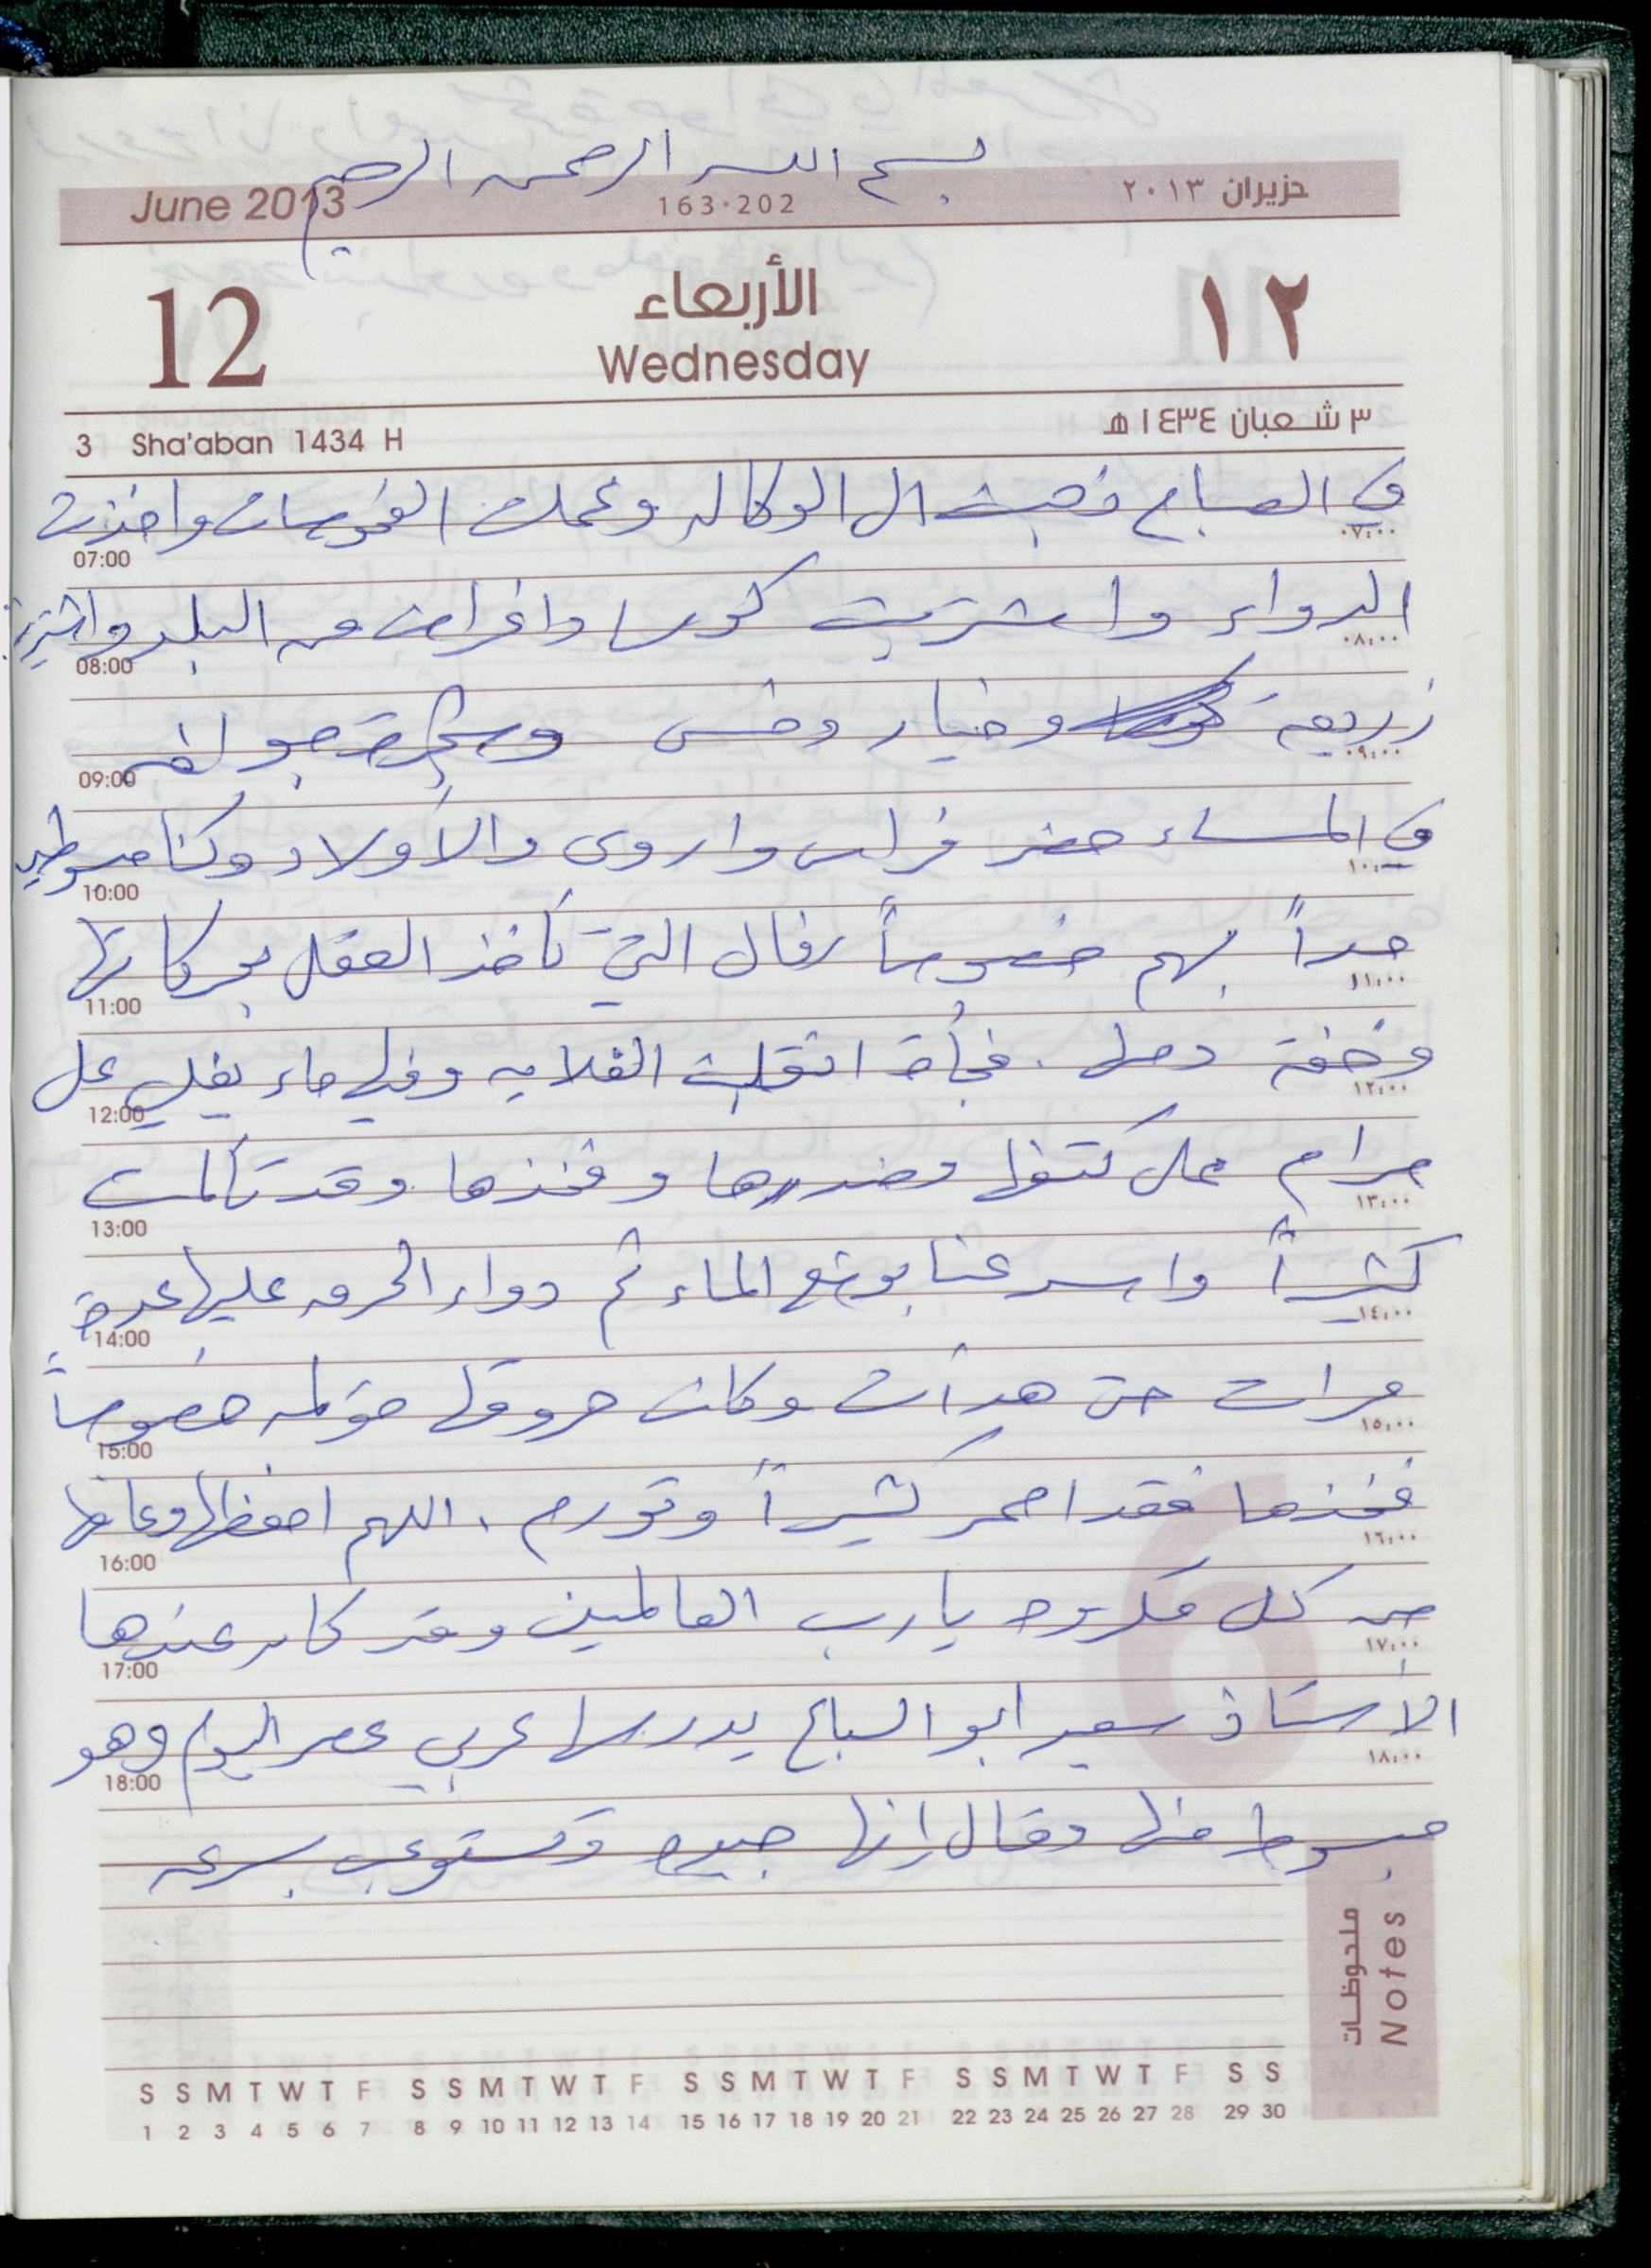 بسم الله الرحمن الرحيم
June 2013 163-202 حزيران ٢٠١٣
12 الأربعاء ١٢
Wednesday
3 Sha'aban 1434 H ٣ شعبان ١٤٣٤ هـ
في الصباح ذهبت الى الوكاله وعملت الفحوصات واخذت
07:00 ٠٧:٠٠
الدواء واشتريت كوسا واغراض من البلد واشتريت
08:00 ٠٨:٠٠
زريعة وخيار وخس وشجرة
09:00 ٠٩:٠٠
في المساء حضر فراس واروى والأولاد وكنا مبسوطين
10:00 ١٠:٠٠
جداً بهم خصوصاً رفال التي تأخذ العقل بحركاتها
11:00 ١١:٠٠
وخفة دمها. فجأة انقلبت الغلايه وفيها ماء يغلي على
12:00 ١٢:٠٠
مرام على كتفها وصدرها وفخذها وقد تألمت
13:00 ١٣:٠٠
كثيراً واسرعنا بوضع الماء ثم دواء الحرق عليها عدة
14:00 ١٤:٠٠
مرات حتى هدأت وكانت حروقها مؤلمه خصوصاً
15:00 ١٥:٠٠
فخذها فقد احمر كثيراً وتورم. اللهم احفظها وعافها
16:00 ١٦:٠٠
من كل مكروه يارب العالمين وقد كان عندها
17:00 ١٧:٠٠
الأستاذ سعيد ابو السباع يدرسها عربي عصر اليوم وهو
18:00 ١٨:٠٠
مبسوط منها وقال إنها جيده وتستوعب بسرعه
ملحوظات
Notes
S S M T W T F S S M T W T F S S M T W T F S S M T W T F S S
1 2 3 4 5 6 7 8 9 10 11 12 13 14 15 16 17 18 19 20 21 22 23 24 25 26 27 28 29 30